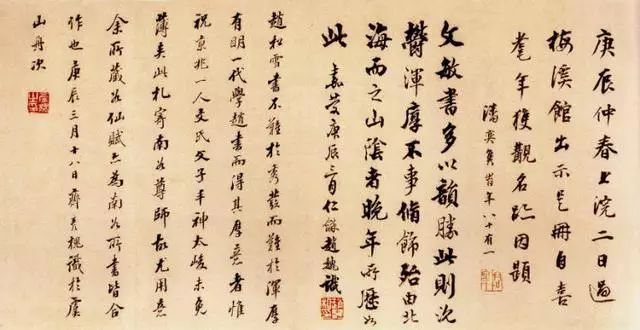 庚辰仲春上浣二日過
梅溪館出示是冊自喜
耄年獲觀名跡因題
潘奕雋時年八十有一
文敏書多以韻勝此則沈
欝渾厚不事脩飾殆由北
海而之山陰者晚年所歷如
此 嘉慶庚辰三月仁龢趙魏識
趙松雪書不難於秀發而難於渾厚
有明一代學趙書而得其厚意者惟
祝京兆一人文氏父子丰神太峻未免
薄矣此札寄南谷尊師故尤用意
余所藏仙賦亦為南谷所書皆合
作也庚辰三月十八日齊彥槐識於虞
山舟次